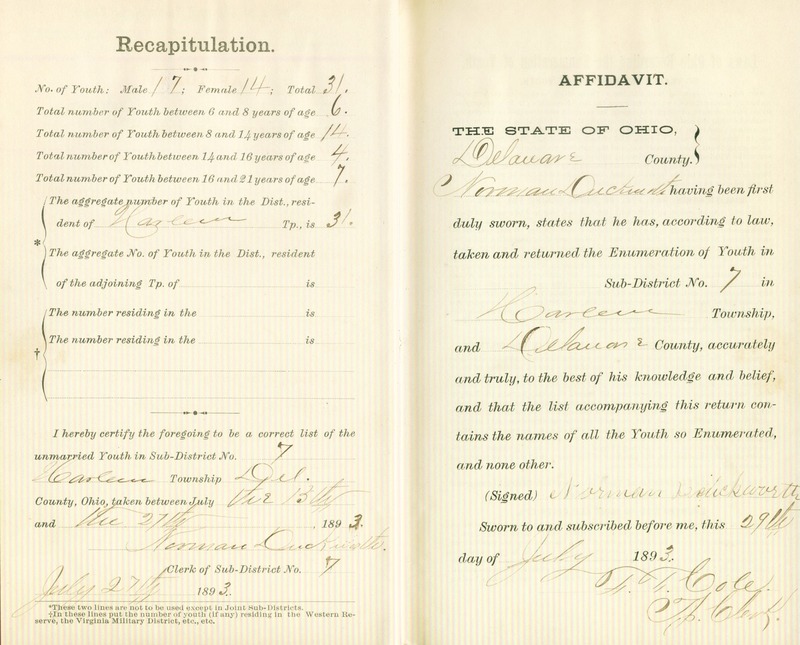 Recapitulation.
No. of Youth: Male 17; Female 14; Total 31.
Total number of Youth between 6 and 8 years of age 6.
Total number of Youth between 8 and 14 years of age 14.
Total number of Youth between 14 and 16 years of age 4.
Total number of Youth between 16 and 21 years of age 7.
The aggregate number of Youth in the Dist., resi-
dent of Harlem Tp., is 31.
*
The aggregate No. of Youth in the Dist., resident
of the adjoining Tp. of is
The number residing in the is
The number residing in the is
†
I hereby certify the foregoing to be a correct list of the
unmarried Youth in Sub-District No. 7
Harlem Township Del.
County, Ohio, taken between July the 13th
and the 27th, 1893.
Norman Duckworth.
Clerk of Sub-District No. 7
July 27th 1893.
*These two lines are not to be used except in Joint Sub-Districts.
†In these lines put the number of youth (if any) residing in the Western Re-
serve, the Virginia Military District, etc., etc.
AFFIDAVIT.
THE STATE OF OHIO,
Delaware County.
Norman Duckworth having been first
duly sworn, states that he has, according to law,
taken and returned the Enumeration of Youth in
Sub-District No. 7 in
Harlem Township,
and Delaware County, accurately
and truly, to the best of his knowledge and belief,
and that the list accompanying this return con-
tains the names of all the Youth so Enumerated,
and none other.
(Signed) Norman Duckworth
Sworn to and subscribed before me, this 29th
day of July 1893.
Cole,
Tp. Clerk.